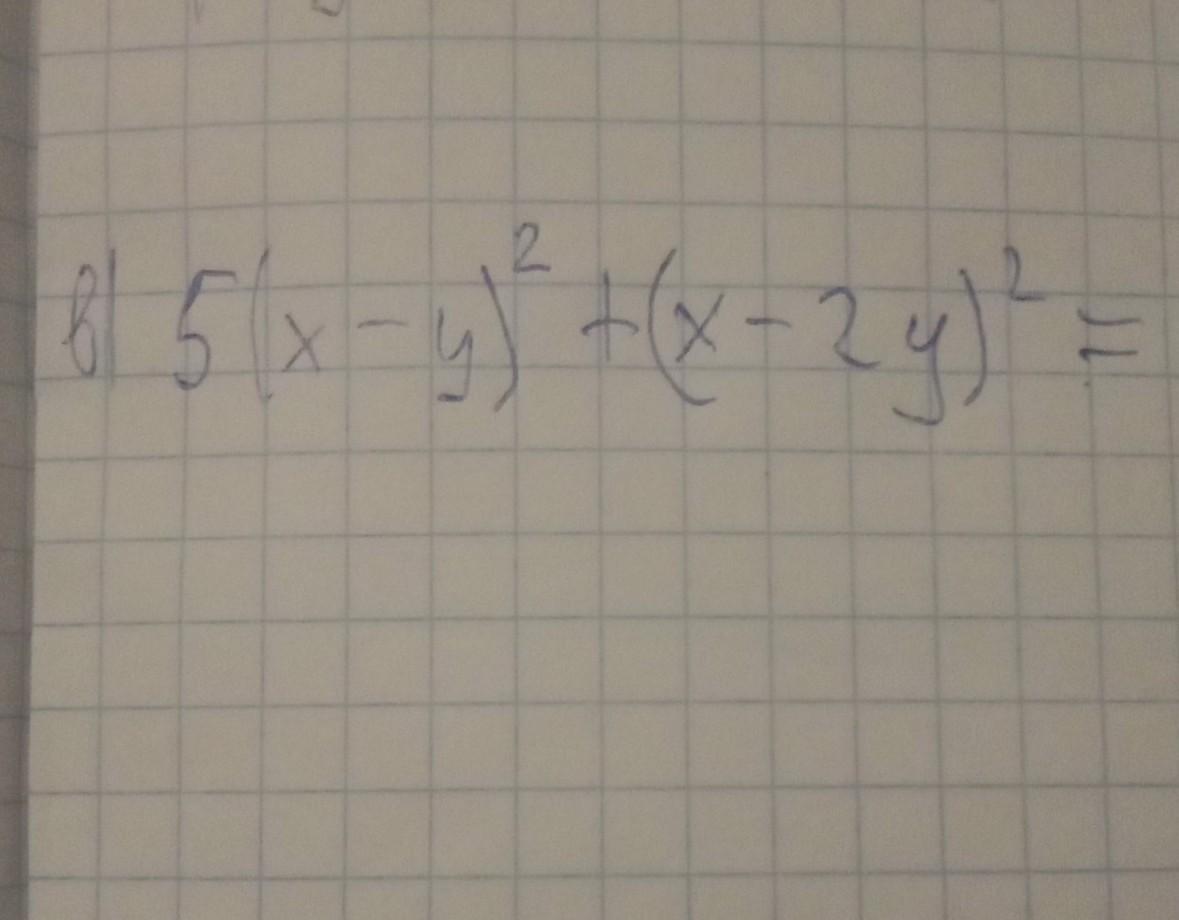 в) 5(x-y)²+(x-2y)²=